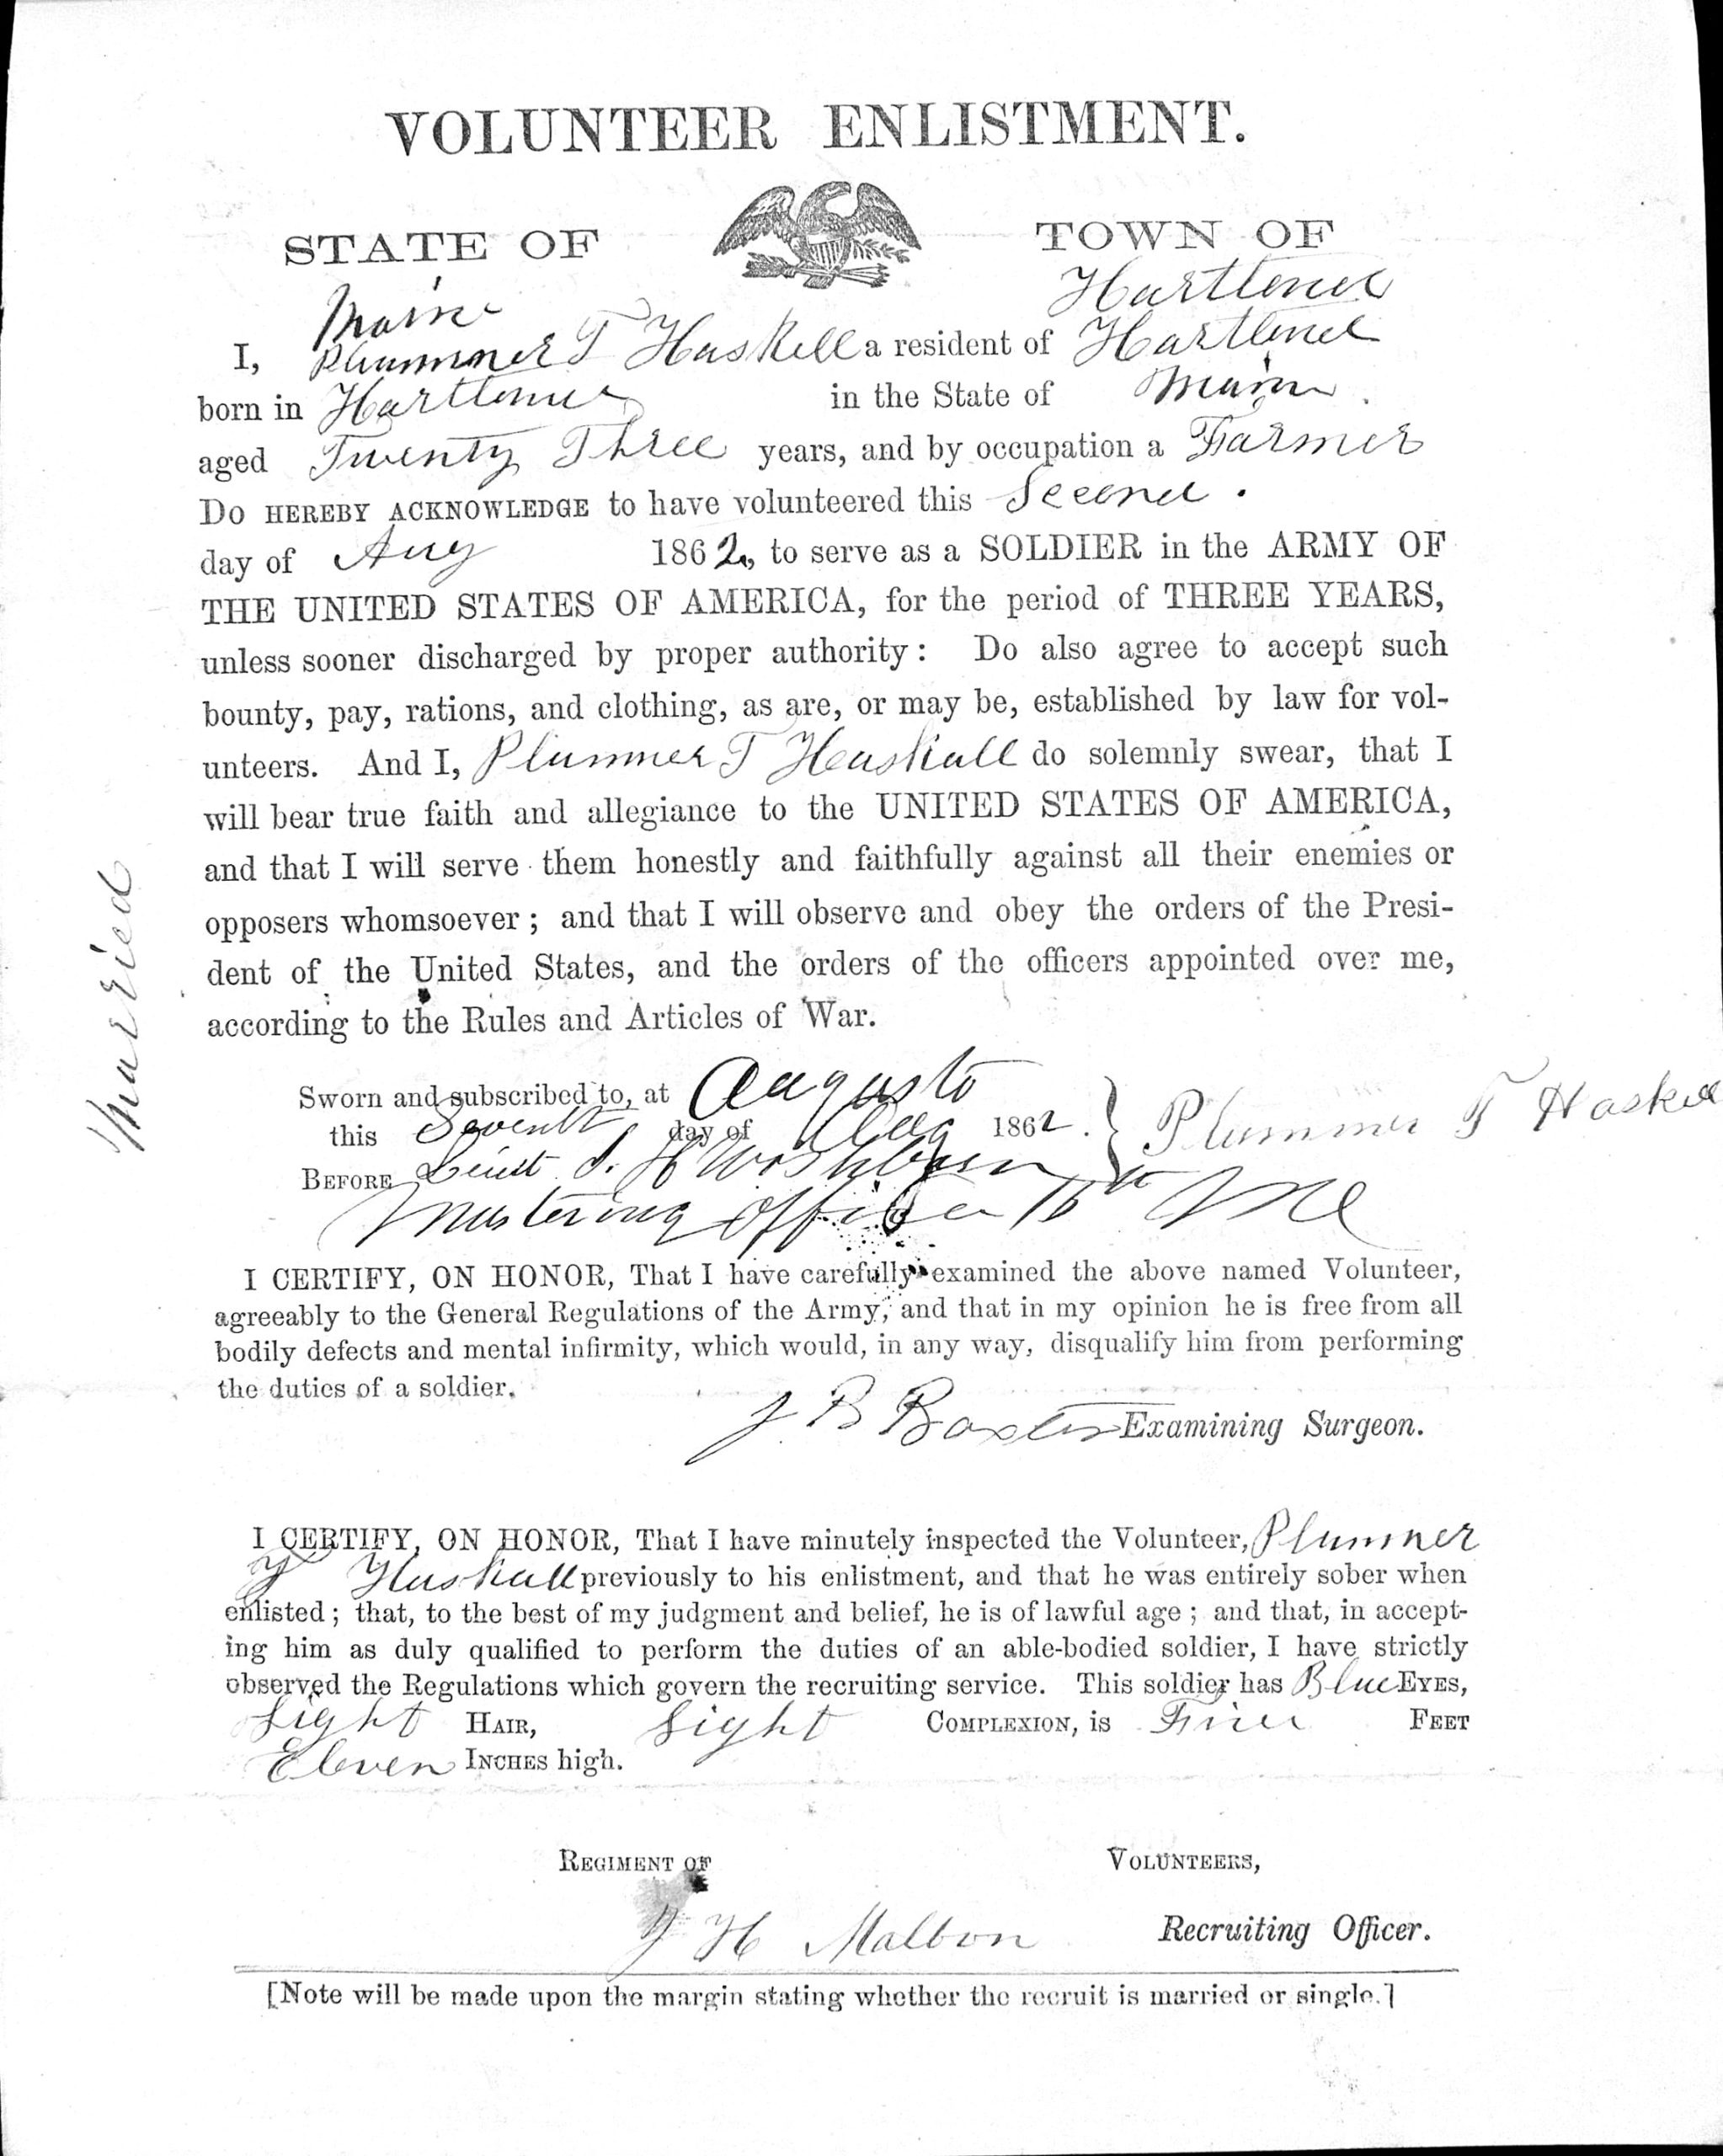 VOLUNTEER ENLISTMENT.
STATE OF TOWN OF
Maine Hartland
I, Plummer T Haskell a resident of Hartland
born in Hartland in the State of Maine.
aged Twenty Three years, and by occupation a Farmer
DO HEREBY ACKNOWLEDGE to have volunteered this Second.
day of Aug 1862, to serve as a SOLDIER in the ARMY OF
THE UNITED STATES OF AMERICA, for the period of THREE YEARS,
unless sooner discharged by proper authority: Do also agree to accept such
bounty, pay, rations, and clothing, as are, or may be, established by law for vol-
unteers. And I, Plummer T Haskall do solemnly swear, that I
will bear true faith and allegiance to the UNITED STATES OF AMERICA,
and that I will serve them honestly and faithfully against all their enemies or
opposers whomsoever; and that I will observe and obey the orders of the Presi-
dent of the United States, and the orders of the officers appointed over me,
according to the Rules and Articles of War.
Married
Sworn and subscribed to, at Augusta
this Seventh day of Aug 1862. } Plummer T Haskell
BEFORE Lieut S. H Washburn
Mustering Officer Me
I CERTIFY, ON HONOR, That I have carefully examined the above named Volunteer,
agreeably to the General Regulations of the Army, and that in my opinion he is free from all
bodily defects and mental infirmity, which would, in any way, disqualify him from performing
the duties of a soldier.
J B Baxter Examining Surgeon.
I CERTIFY, ON HONOR, That I have minutely inspected the Volunteer, Plummer
T Haskall previously to his enlistment, and that he was entirely sober when
enlisted; that, to the best of my judgment and belief, he is of lawful age; and that, in accept-
ing him as duly qualified to perform the duties of an able-bodied soldier, I have strictly
observed the Regulations which govern the recruiting service. This soldier has Blue EYES,
Light HAIR, Light COMPLEXION, is Five FEET
Eleven INCHES high.
REGIMENT OF VOLUNTEERS,
H Malbon Recruiting Officer.
[Note will be made upon the margin stating whether the recruit is married or single.]